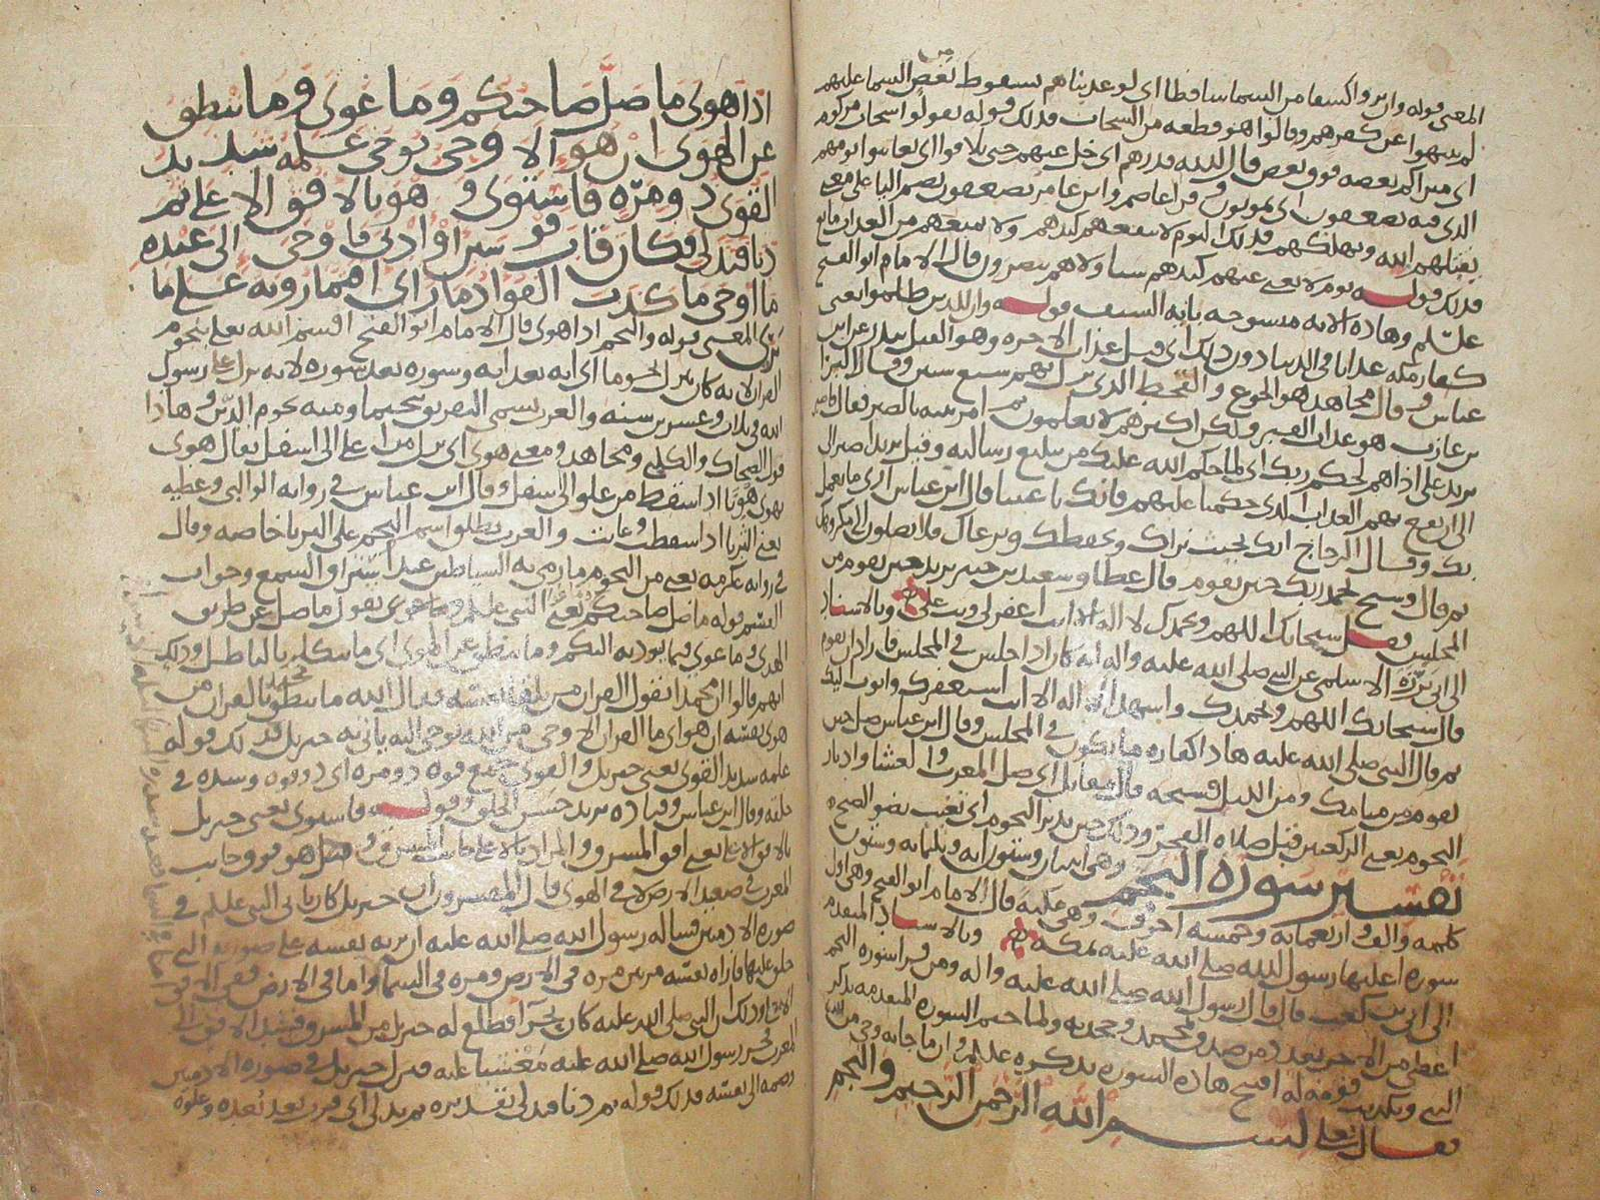 المعنى قوله وان يروا كسفا من السما ساقطا اى لو عذبناهم بسقوط بعض من السما عليهم
لم ينتهوا عن كفرهم وقالوا هو قطعه من السحاب فذلك قوله يقولوا سحاب مركوم
اى متراكم بعضه فوق بعض قال الله فذرهم اى خل عنهم حتى يلاقوا اى يعاينوا يومهم
الذى فيه يصعقون اى يموتون وقرا عاصم وابن عامر يصعقون بضم اليا على معنى
الله ويهلكهم فذلك اليوم لا ينفعهم كيدهم ولا يمنعهم من العذاب مانع
فذلك قوله يوم لا يغنى عنهم كيدهم شيا ولا هم ينصرون قال الامام ابو الفتح
وهاذه الايه منسوخه بايه السيف قوله وان للذين ظلموا يعنى
كفار مكه عذابا فى الدنيا دون ذلك اى قبل عذاب الاخره وهو القتل ببدر عن ابن
عباس وقال مجاهد هو الجوع والقحط الذى نزل بهم سبع سنين وقال البرا
بن عازب هو عذاب القبر ولكن اكثرهم لا يعلمون ثم امر نبيه بالصبر فقال
اى لما حكم الله عليك من تبليغ رسالته وقيل يريد اصبر الى
الى ان يقع بهم العذاب الذى حكمنا عليهم فانك باعيننا قال ابن عباس ارى ما يعمل
بك وقال الزجاج انك بحيث نراك ونحفظك ونرعاك فلا يصلون الى مكروهك
ثم قال وسبح بحمد ربك حين تقوم قال عطا وسعيد بن جبير يريد حين تقوم من
المجلس فقل سبحانك اللهم وبحمدك لا اله الا انت اغفر لى وتب على وبالاسناد
الى ابى برزه الاسلمى عن النبى صلى الله عليه واله انه كان اذا جلس فى المجلس فاراد ان يقوم
قال سبحانك اللهم وبحمدك واشهد ان لا اله الا انت استغفرك واتوب اليك
ثم قال النبى صلى الله عليه هاذا كفاره ما يكون فى المجلس وقال ابن عباس صل حين
تقوم من منامك ومن الليل فسبحه قال مقاتل اى صل المغرب والعشا وادبار
النجوم يعنى الركعتين قبل صلاه الفجر وذلك حين تدبر النجوم اى تغيب بضو الصبح
تفسير سوره النجم وهى اثنان وستون ايه وثلثمايه وستون
كلمه والف واربعمايه وخمسه احرف وهى مكيه قال الامام ابو الفتح وهى اول
سوره اعلنها رسول الله صلى الله عليه بمكه وبالاسناد المتقدم
الى ابى بن كعب قال قال رسول الله صلى الله عليه واله ومن قرا سوره النجم
اعطى من الاجر بعدد من صدق بمحمد وجحد به ولما ختم السوره المتقدمه بذكر
النبى وتكذيب قومه له افتتح هاذه السوره بذكره عليه السلم وان ما جا به وحى من الله
فقال تعلى بسم الله الرحمن الرحيم والنجم
اذا هوى ما ضل صاحبكم وما غوى وما ينطق
عن الهوى ان هو الا وحى يوحى علمه شديد
القوى ذو مره فاستوى وهو بالافق الاعلى ثم
دنا فتدلى فكان قاب قوسين او ادنى فاوحى الى عبده
ما اوحى ما كذب الفواد ما راى افتمارونه على ما
يرى المعنى قوله والنجم اذا هوى قال الامام ابو الفتح اقسم الله تعلى بنجوم
القران لانه كان ينزل نجوما اى ايه بعد ايه وسوره بعد سوره لانه نزل على رسول
الله فى ثلاث وعشرين سنه والعرب تسمى التفريق تنجيما ومنه نجوم الدين وهاذا
قول الضحاك والكلبى ومجاهد ومعنى هوى اى نزل من اعلى الى اسفل يقال هوى
يهوى هويا اذا سقط من علو الى اسفل وقال ابن عباس فى روايه الوالبى وعطيه
يعنى الثريا اذا سقطت وغابت والعرب تطلق اسم النجم على الثريا خاصه وقال
فى روايه عكرمه يعنى من النجوم ما رمى به الشياطين عند استراق السمع وجواب
القسم قوله ما ضل صاحبكم يعنى النبى عليه السلم وما غوى يقول ما ضل عن طريق
الهدى وما غوى فيما يوديه اليكم وما ينطق عن الهوى اى ما يتكلم بالباطل وذلك
انهم قالوا ان محمدا يقول القران من تلقا نفسه فقال الله ما ينطق محمد بالقران من
هوى نفسه ان هو اى ما القران الا وحى من الله يوحى اليه ياتى به جبريل فذلك قوله
علمه شديد القوى يعنى جبريل والقوى جمع قوه ذو مره اى ذو قوه وشده فى
خلقه وقال ابن عباس وقتاده يريد حسن الخلق وقوله فاستوى يعنى جبريل
بالافق الاعلى يعنى افق المشرق والمراد بالاعلى جانب المشرق وهو فوق جانب
المغرب فى صعيد الارض لا فى الهوى قال المفسرون ان جبريل كان ياتى النبى عليه السلم فى
صوره الادميين فساله رسول الله صلى الله عليه ان يريه نفسه على صورته التى
خلق عليها فاراه نفسه مرتين مره فى الارض ومره فى السما واما فى الارض ففى الافق
الاعلى وذلك ان النبى صلى الله عليه كان بحرا فطلع له جبريل من المشرق فسد الافق الى
المغرب فخر رسول الله صلى الله عليه مغشيا عليه فنزل جبريل فى صوره الادميين
وضمه الى نفسه فذلك قوله ثم دنا فتدلى تقديره ثم تدلى اى قرب بعد بعده وعلوه